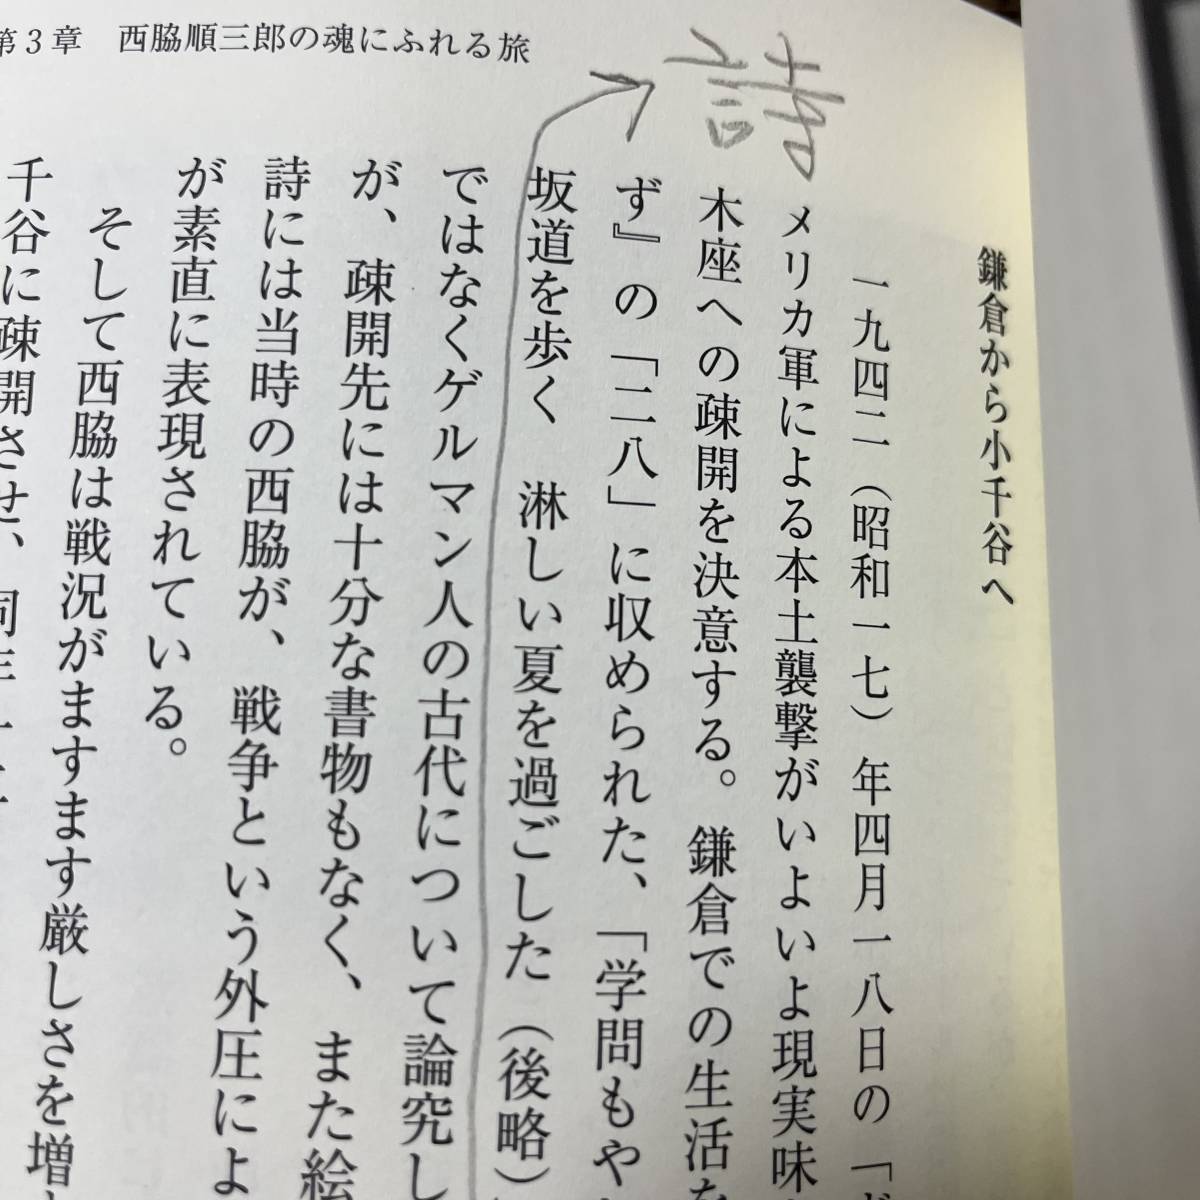 第3章 西脇順三郎の魂にふれる旅
詩
鎌倉から小千谷へ
一九四二(昭和一七)年四月一八日の「ド
メリカ軍による本土襲撃がいよいよ現実味
木座への疎開を決意する。鎌倉での生活を
ず』の「二八」に収められた、「学問もや
坂道を歩く 淋しい夏を過ごした(後略)
ではなくゲルマン人の古代について論究し
が、疎開先には十分な書物もなく、また絵
詩には当時の西脇が、戦争という外圧によ
が素直に表現されている。
そして西脇は戦況がますます厳しさを増
千谷に疎開させ、同年